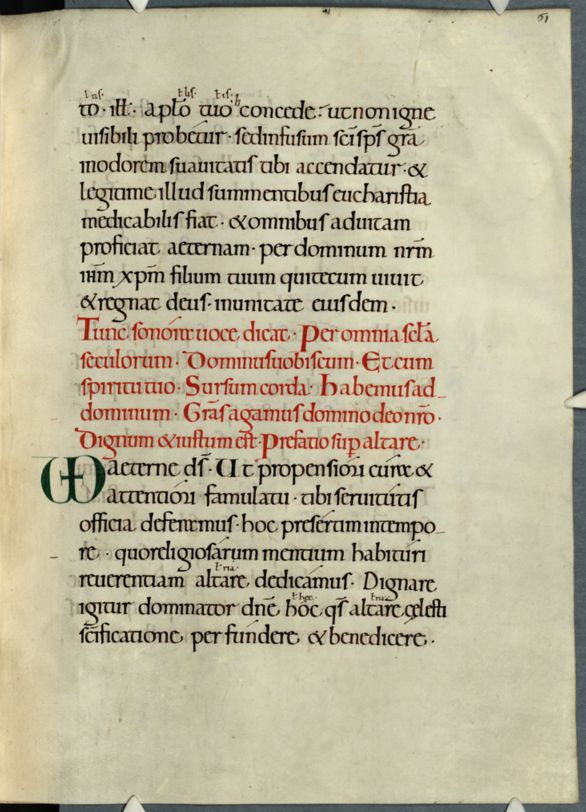 61
ł ns. ł lis. ł is.
to · ilł · aplo tuo concede · ut non igne
uisibili probetur · sed infusum sci sps gra
in odorem suauitatis tibi accendatur · &
legitime illud summentibus eucharistia
medicabilis fiat · & omnibus ad uitam
proficiat aeternam · per dominum nrm
ihm xpm filium tuum qui tecum uiuit
& regnat deus · in unitate eiusdem ·
Tunc sonore uoce dicat · Per omnia scla
seculorum · Dominus uobiscum · Et cum
spiritu tuo · Sursum corda · habemus ad
dominum · Gras agamus domino deo nro ·
Dignum & iustum est · Prefatio sup altare ·
VD aeterne ds · Ut propensiori cura &
attentiori famulatu · tibi seruitutis
officia deferemus · hoc presertim in tempo
re · quo religiosarum mentium habituri
ł ria
reuerentiam altare dedicamus · Dignare
ł hec ł ria
igitur dominator dne hoc qs altare celesti
scificatione perfundere & benedicere ·